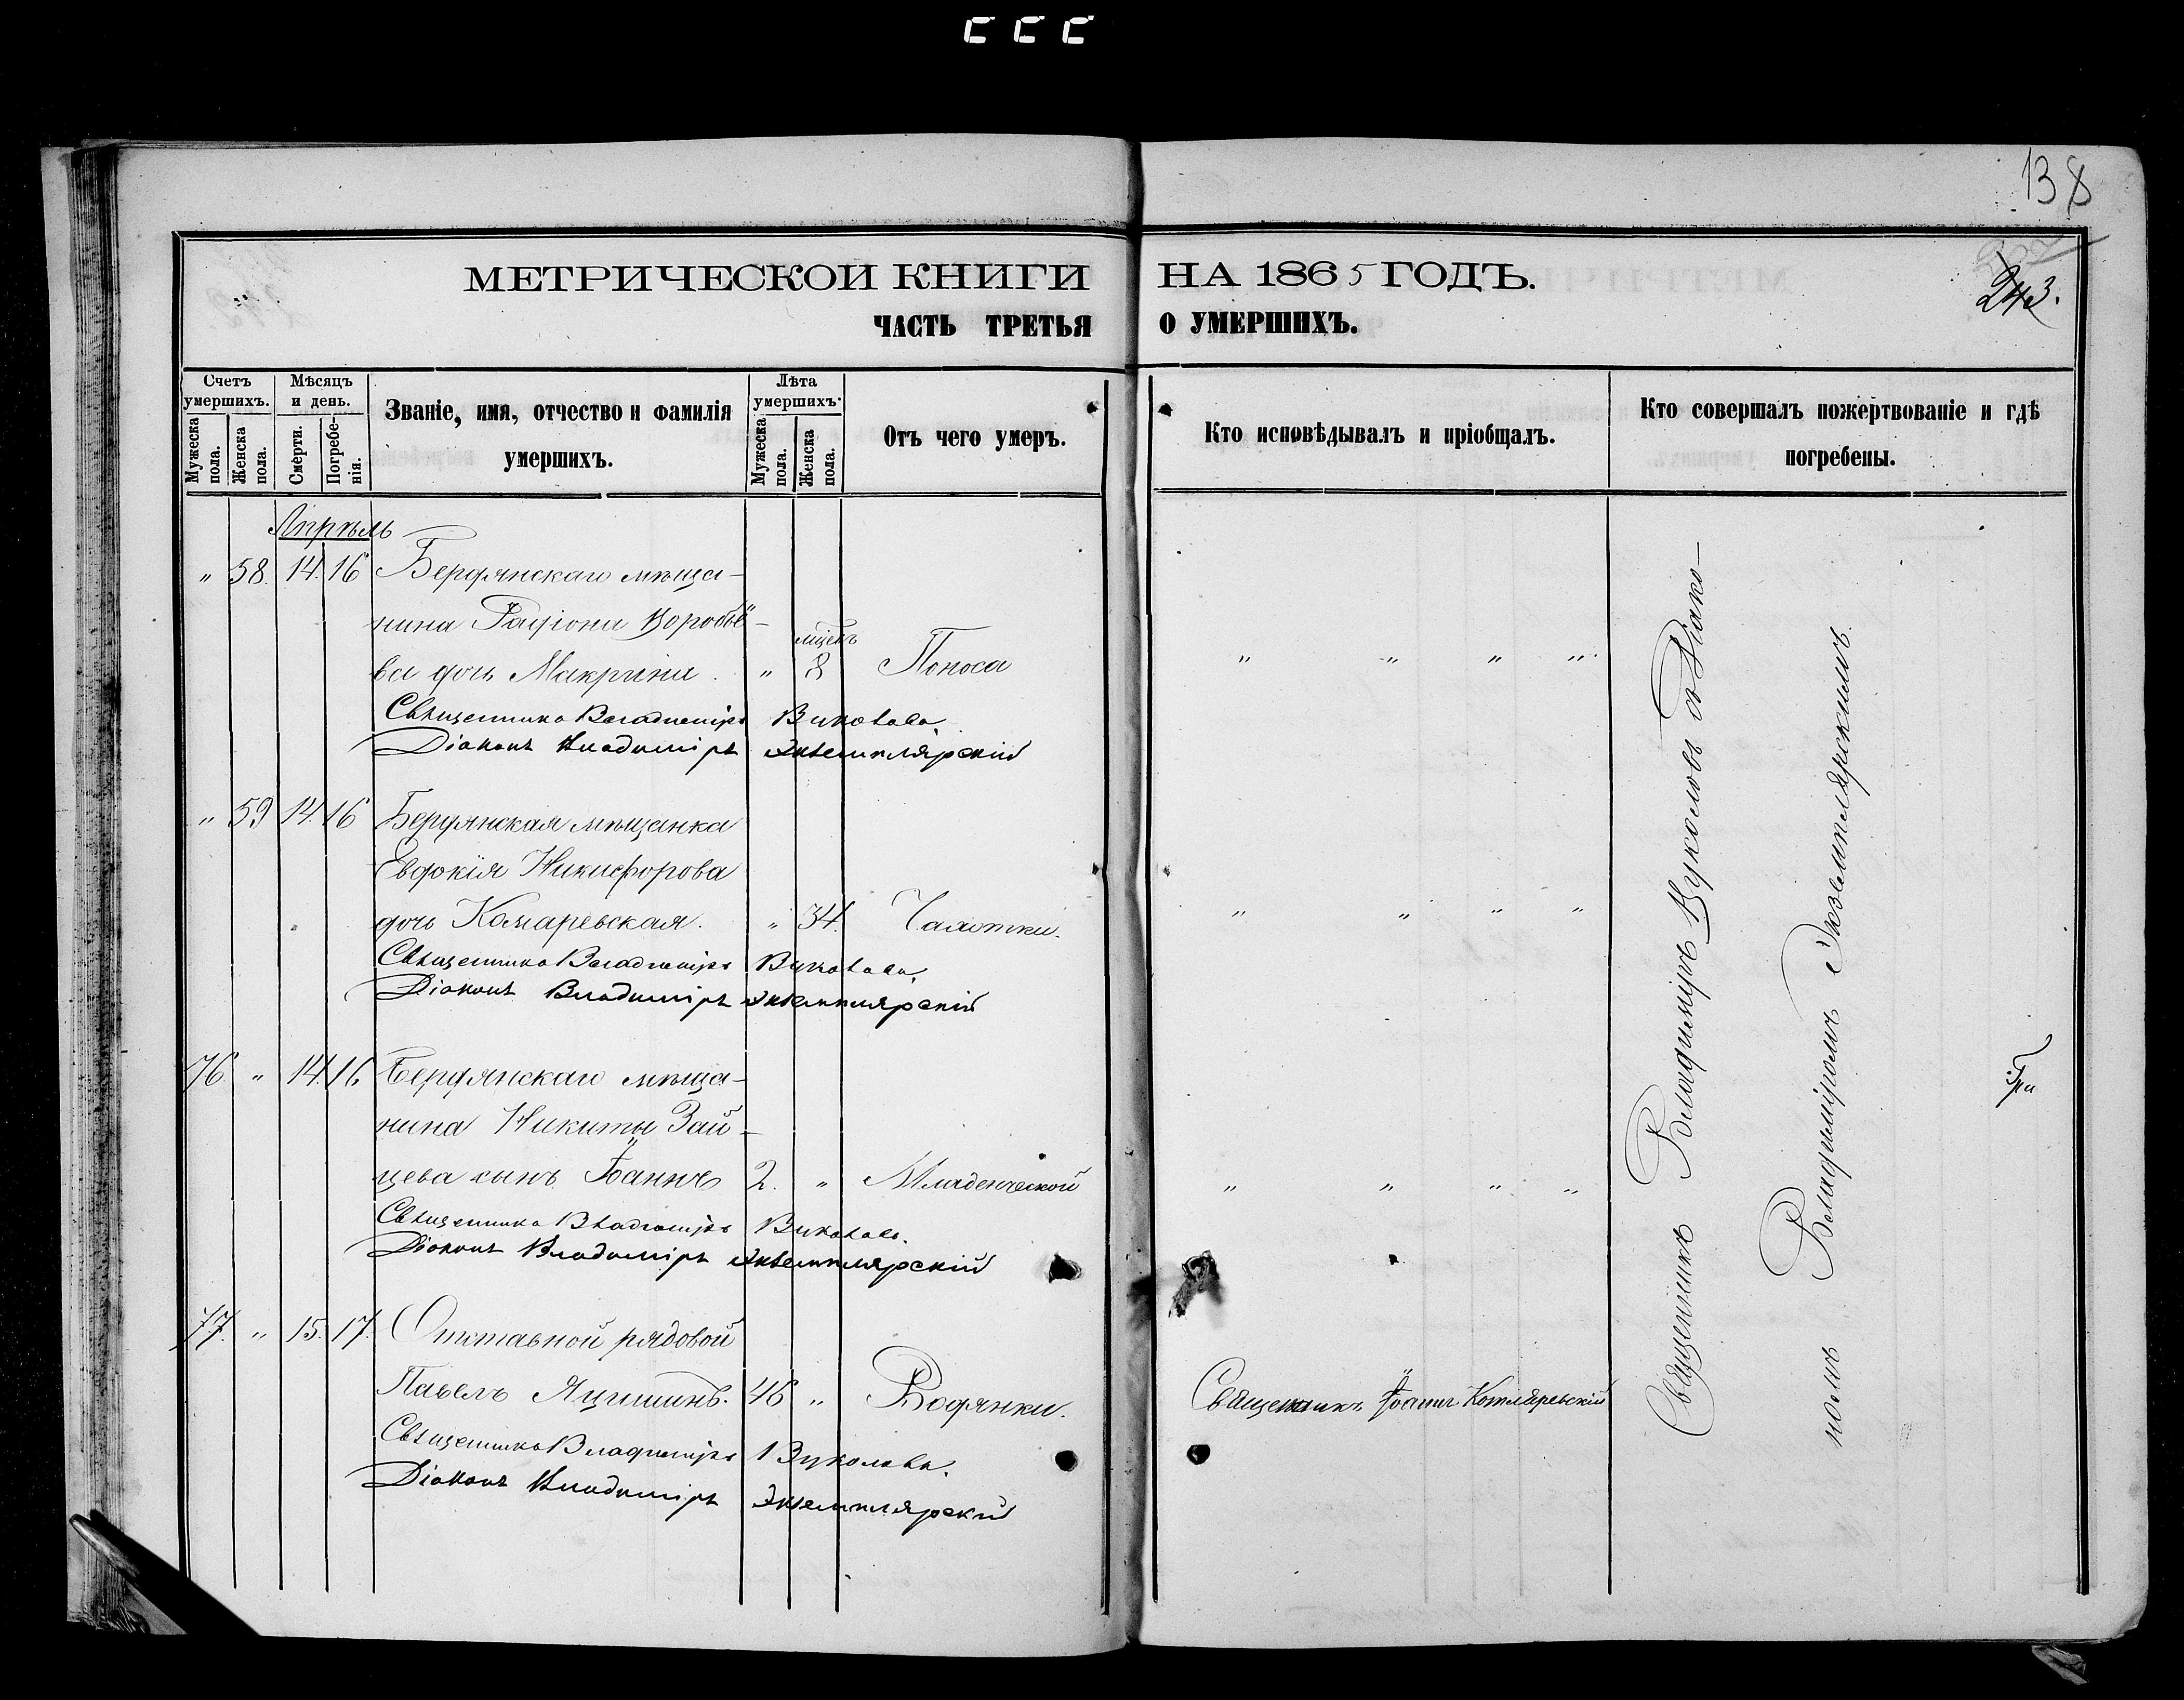 138
243.
МЕТРИЧЕСКОЙ КНИГИ НА 1865 ГОДЪ.
ЧАСТЬ ТРЕТЬЯ О УМЕРШИХЪ.
Счетъ умершихъ.
Мужеска пола.
Женска пола.
Мѣсяцъ и день.
Смерти.
Погребенія.
Званіе, имя, отчество и фамилія
умершихъ.
Лѣта умершихъ.
Мужеска пола.
Женска пола.
Отъ чего умеръ.
Кто исповѣдывалъ и пріобщалъ.
Кто совершалъ пожертвованіе и гдѣ
погребены.
Апрѣль
" 58. 14. 16 Бердянскаго мѣща-
нина Радіона Воробье-
ва дочь Макрина. " мцевъ 8 Поноса " " " "
Священникъ Владиміръ Вуколовъ
Діаконъ Владиміръ Экземплярскій
" 59 14. 16 Бердянская мѣщанка
Евдокія Никифорова
дочь Комаревская. " 34. Чахотки. " " " "
Священникъ Владиміръ Вуколовъ.
Діаконъ Владиміръ Экземплярскій
76. " 14. 16 Бердянскаго мѣща-
нина Никиты Зай-
цева сынъ Іоаннъ 2. " Младенческой " " " "
Священникъ Владиміръ Вуколовъ.
Діаконъ Владиміръ Экземплярскій
77. " 15. 17. Отставной рядовой
Павелъ Яцишинъ. 46 " Водянки. Священникъ Іоаннъ Котляревскій
Священникъ Владиміръ Вуколовъ.
Діаконъ Владиміръ Экземплярскій
Священникъ Владиміръ Вуколовъ съ Діако-
номъ Владиміромъ Экземплярскимъ.